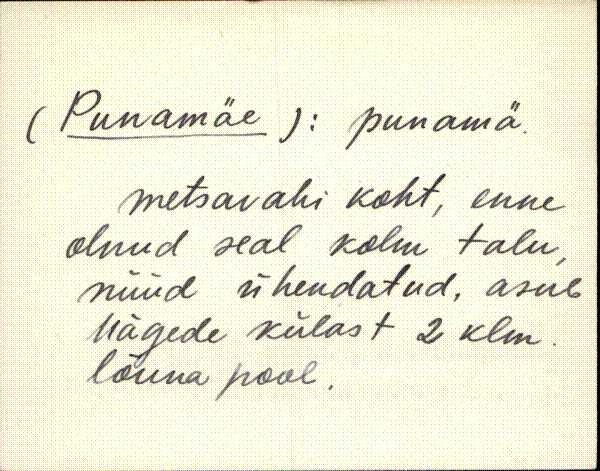 (Punamäe): punamä.
metsavahi koht, enne
olnud seal kolm talu,
nüüd ühendatud, asub
Hägede külast 2 klm.
lõuna pool.